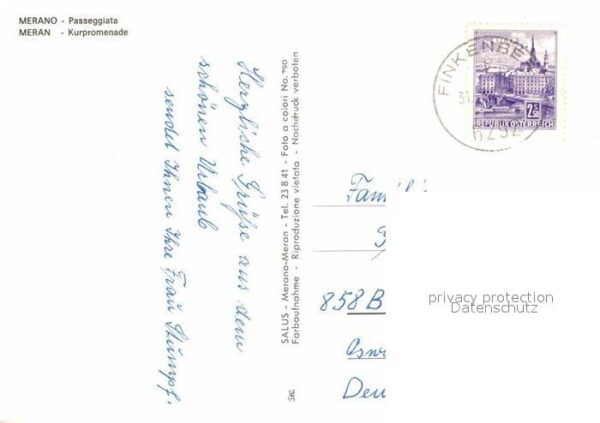 MERANO - Passeggiata
MERAN - Kurpromenade
Herzliche Grüße aus dem
schönen Urlaub
sendet Ihnen Ihre Frau Stümpf.
SALUS - Merano-Meran - Tel. 23841 - Foto a colori No. 790
Farbaufnahme - Riproduzione vietata - Nachdruck verboten
FINKENBE
31.
6292
2.50
REPUBLIK ÖSTERREICH
Fam
858 B
Deu
privacy protection
Datenschutz